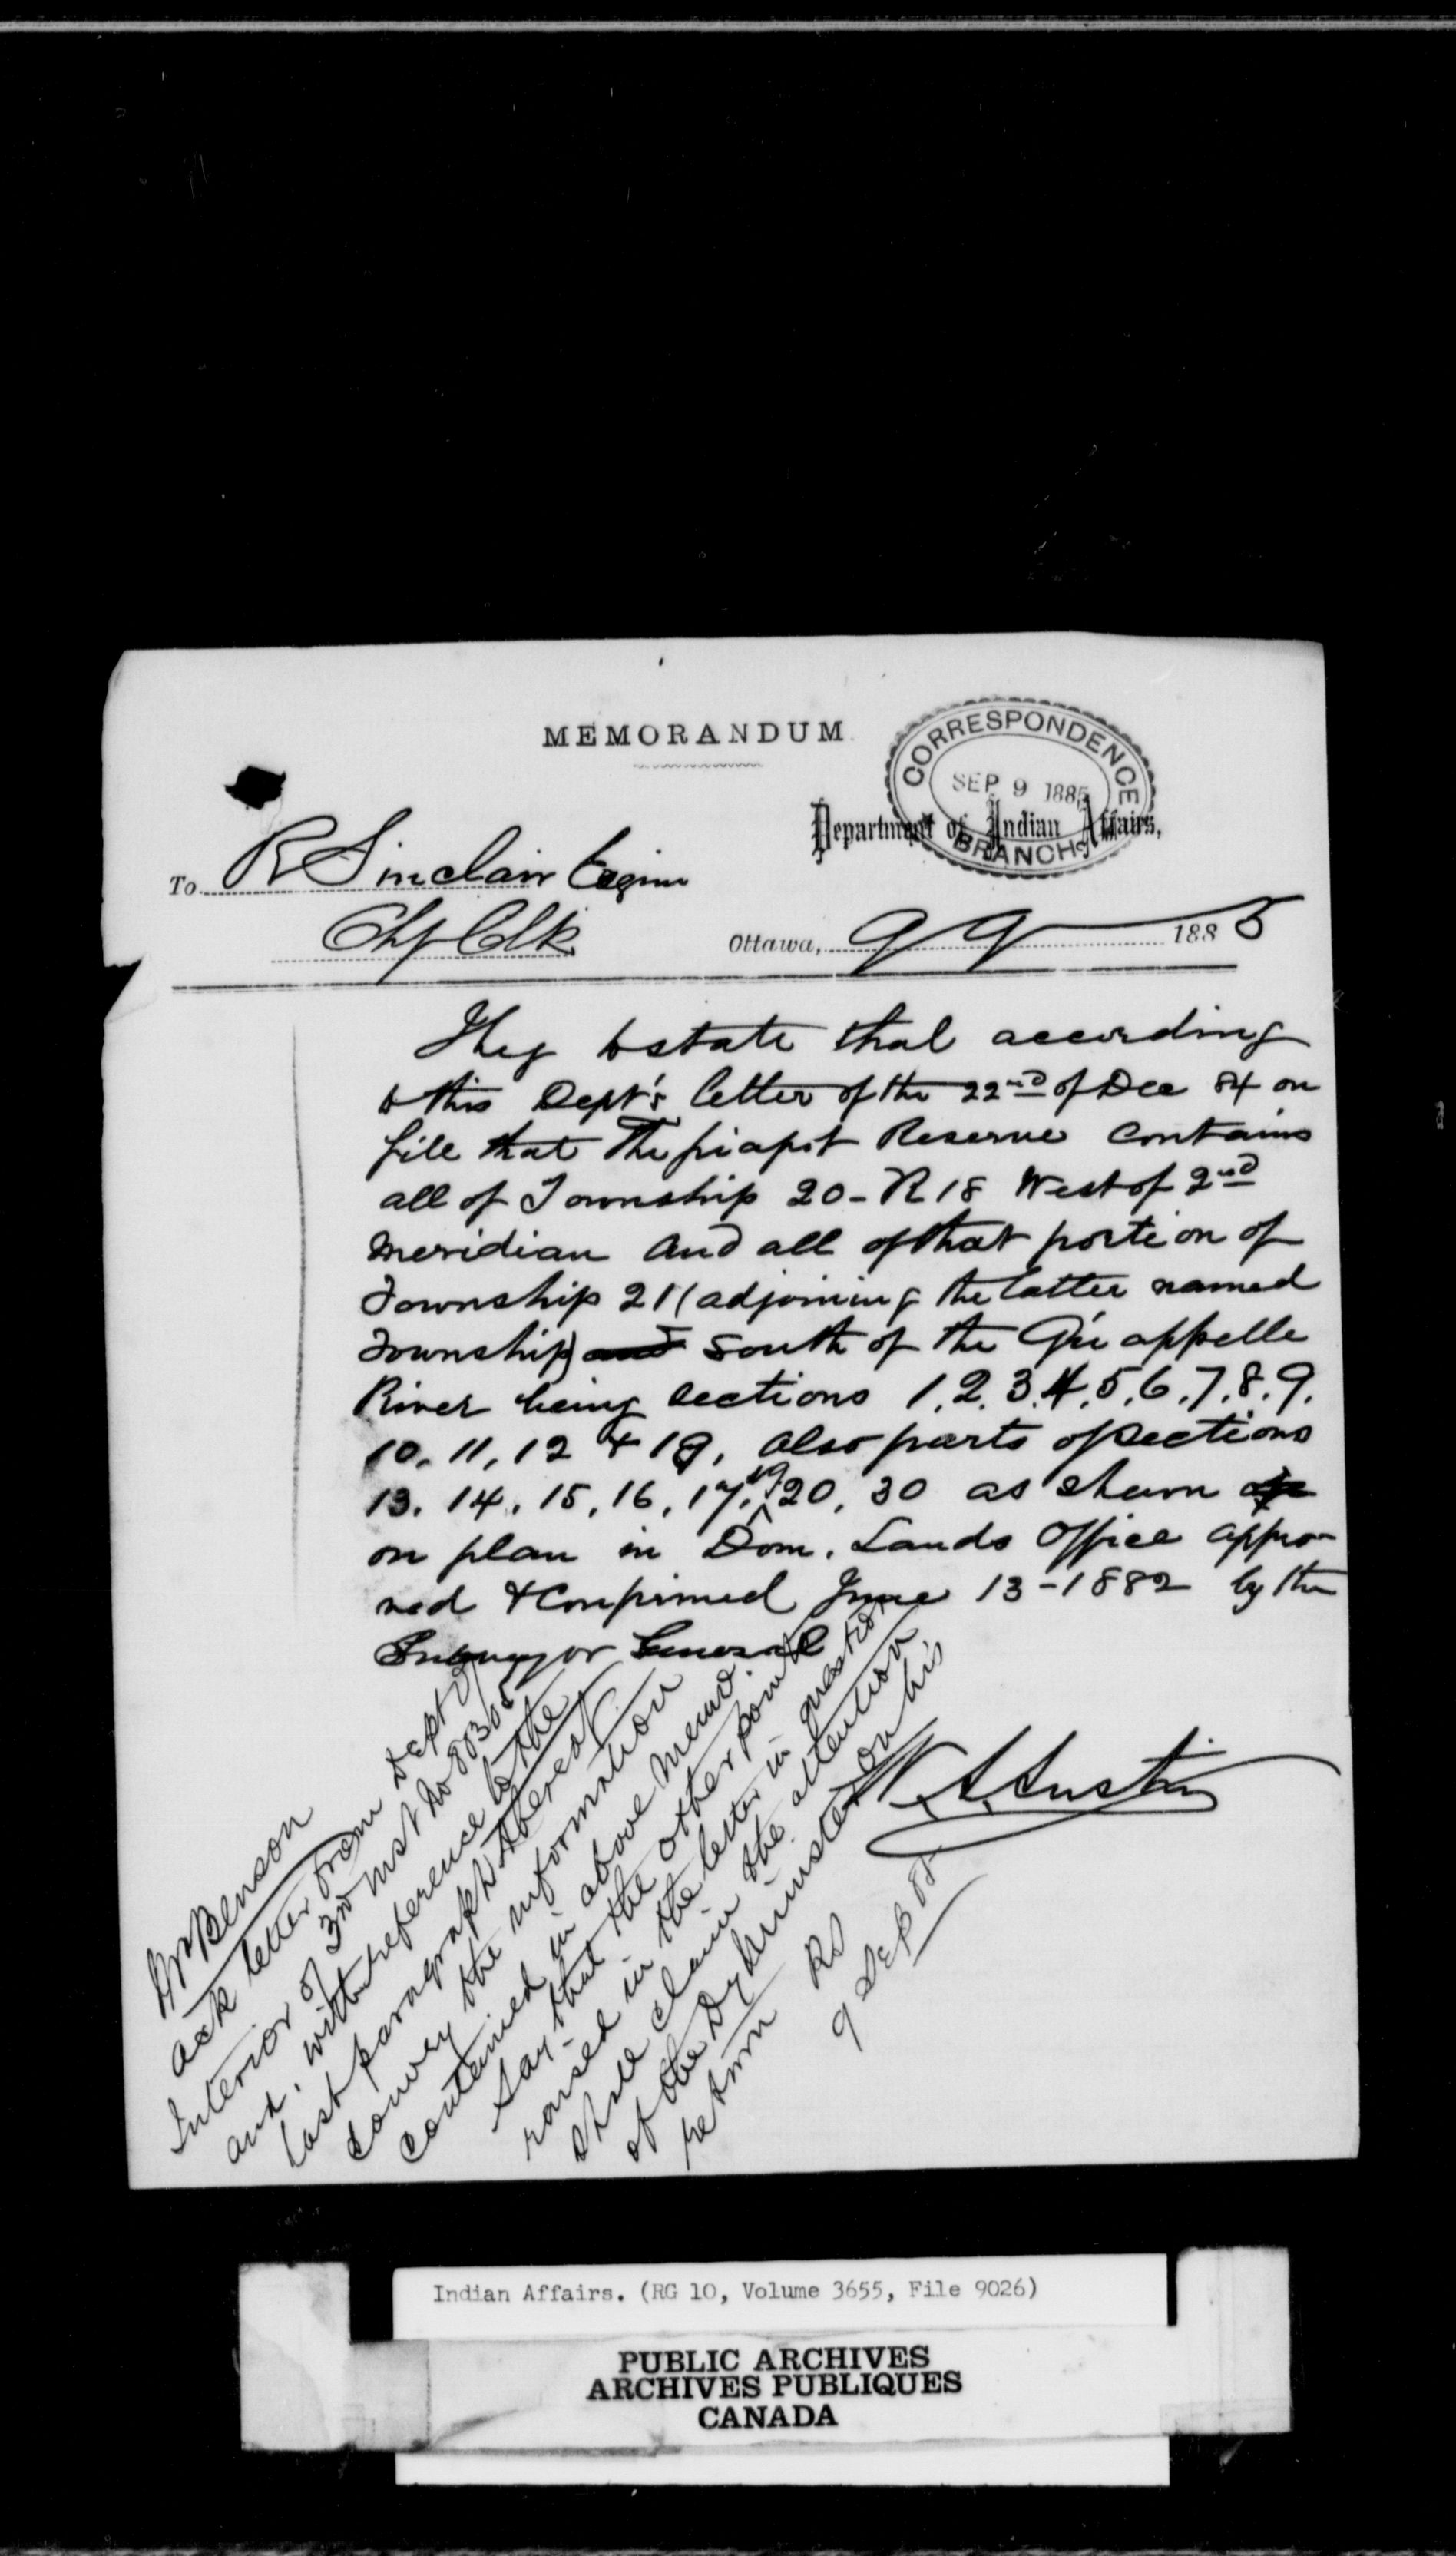 MEMORANDUM
CORRESPONDENCE
SEP 9 1885
BRANCH
Department of Indian Affairs,
To R Sinclair Esquire
Chf Clk
Ottawa, 9 9 1885
I beg to state that according
to this Dept's letter of the 22nd of Dec 84 on
file that the piapot Reserve contains
all of Township 20 - R 18 West of 2nd
meridian and all of that portion of
Township 21 (adjoining the latter named
Township) and South of the Qu'appelle
River being sections 1, 2, 3, 4, 5, 6, 7, 8, 9,
10, 11, 12 & 18, also parts of sections
13, 14, 15, 16, 17, 19, 20, 30 as shewn
on plan in Dom. Lands Office appro
ved & Confirmed June 13 - 1882 by the
Surveyor General
W. A. Austin
Mr Benson
Ack letter from Dept of
Interior of 3rd inst No
and, with reference to the
last paragraph thereof
convey the information
contained in above memo.
Say that the other points
raised in the letter in question
shall claim the attention
of the Dy Minister on his
return
RS
9 Sep 85
Indian Affairs. (RG 10, Volume 3655, File 9026)
PUBLIC ARCHIVES
ARCHIVES PUBLIQUES
CANADA